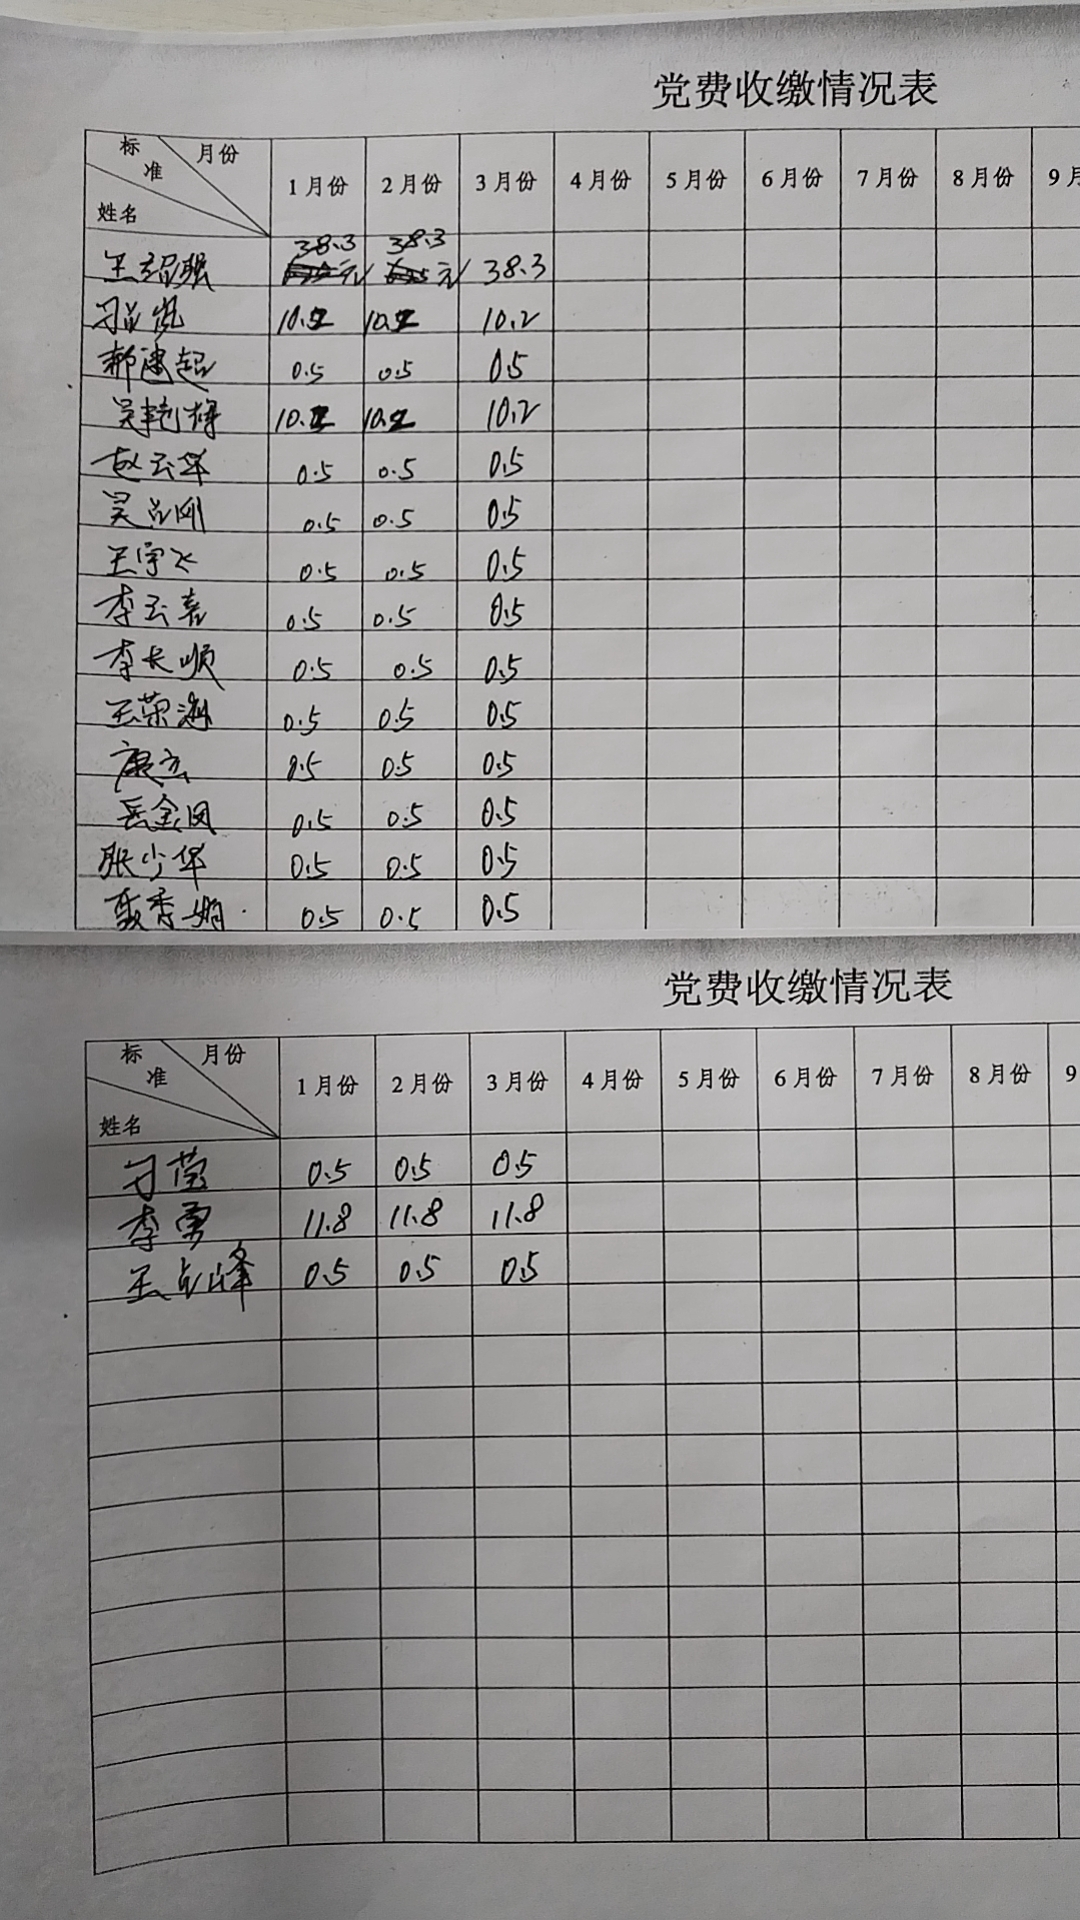 党费收缴情况表
标准 月份 姓名 1月份 2月份 3月份 4月份 5月份 6月份 7月份 8月份 9月
38.3 38.3
王 强 元 元 38.3
刁 10.2 10.2 10.2
郝建超 0.5 0.5 0.5
吴艳梅 10.2 10.2 10.2
赵云华 0.5 0.5 0.5
吴占刚 0.5 0.5 0.5
王宇飞 0.5 0.5 0.5
李云春 0.5 0.5 0.5
李长顺 0.5 0.5 0.5
王荣海 0.5 0.5 0.5
康 0.5 0.5 0.5
岳金凤 0.5 0.5 0.5
张少华 0.5 0.5 0.5
聂秀娟 0.5 0.5 0.5
党费收缴情况表
标准 月份 姓名 1月份 2月份 3月份 4月份 5月份 6月份 7月份 8月份 9
刁莹 0.5 0.5 0.5
李勇 11.8 11.8 11.8
王占峰 0.5 0.5 0.5